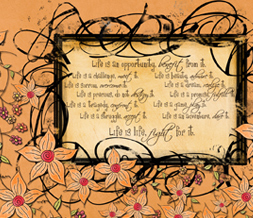 Life is an opportunity, benefit from it.
Life is a challenge, meet it.
Life is beauty, admire it.
Life is sorrow, overcome it.
Life is a dream, realize it.
Life is precious, do not destroy it.
Life is a promise, fulfill it.
Life is a tragedy, confront it.
Life is a game, play it.
Life is a struggle, accept it.
Life is an adventure, dare it.
Life is life, fight for it.